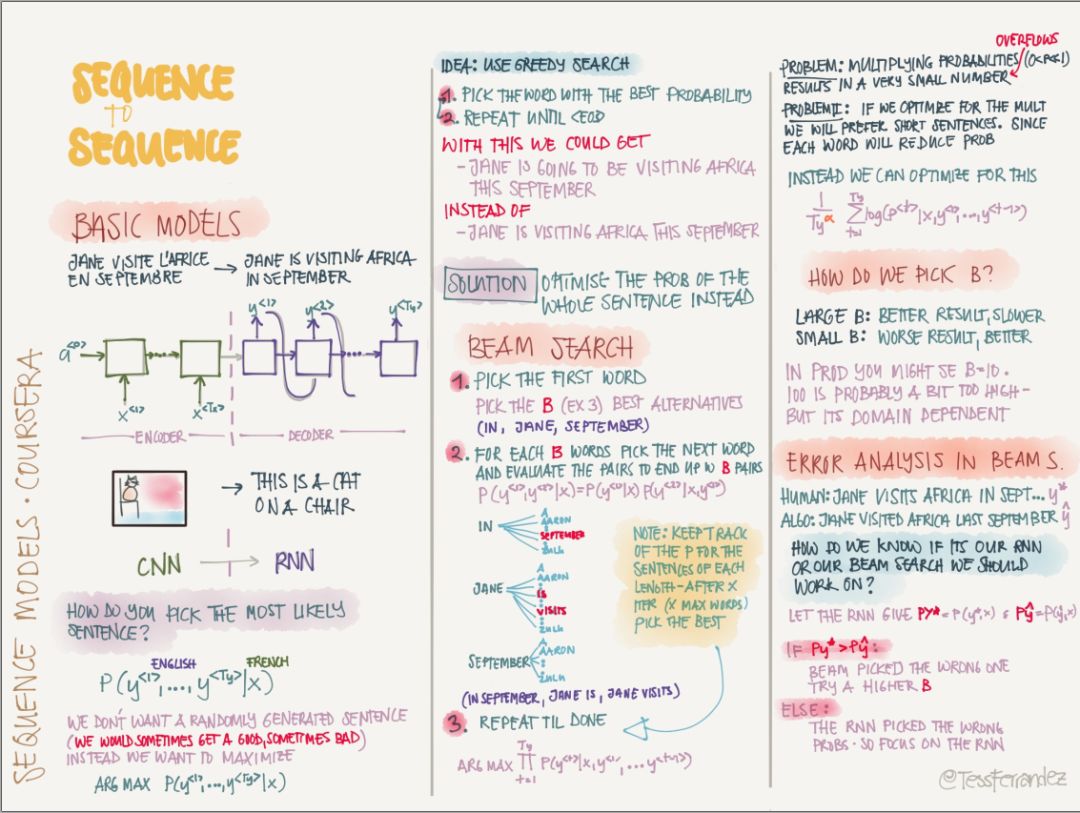 SEQUENCE MODELS · COURSERA
SEQUENCE
TO
SEQUENCE
BASIC MODELS
JANE VISITE L'AFRICE
EN SEPTEMBRE
→ JANE IS VISITING AFRICA
IN SEPTEMBER
a<0>
y<1>
y<2>
y<Ty>
x<1>
x<Tx>
ENCODER
DECODER
→ THIS IS A CAT
ON A CHAIR
CNN → RNN
HOW DO YOU PICK THE MOST LIKELY
SENTENCE?
ENGLISH
FRENCH
P(y<1>,...,y<Ty>|x)
WE DON'T WANT A RANDOMLY GENERATED SENTENCE
(WE WOULD SOMETIMES GET A GOOD, SOMETIMES BAD)
INSTEAD WE WANT TO MAXIMIZE
ARG MAX P(y<1>,...,y<Ty>|x)
IDEA: USE GREEDY SEARCH
1. PICK THE WORD WITH THE BEST PROBABILITY
2. REPEAT UNTIL <EOD
WITH THIS WE COULD GET
- JANE IS GOING TO BE VISITING AFRICA
THIS SEPTEMBER
INSTEAD OF
- JANE IS VISITING AFRICA THIS SEPTEMBER
SOLUTION
OPTIMISE THE PROB OF THE
WHOLE SENTENCE INSTEAD
BEAM SEARCH
1. PICK THE FIRST WORD
PICK THE B (EX 3) BEST ALTERNATIVES
(IN, JANE, SEPTEMBER)
2. FOR EACH B WORDS PICK THE NEXT WORD
AND EVALUATE THE PAIRS TO END UP W B PAIRS
P(y<1>,y<2>|x)=P(y<1>|x) P(y<2>|x,y<1>)
IN
A
AARON
SEPTEMBER
ZULU
JANE
A
AARON
IS
VISITS
ZULU
SEPTEMBER
A
AARON
ZULU
NOTE: KEEP TRACK
OF THE P FOR THE
SENTENCES OF EACH
LENGTH - AFTER X
ITER (X MAX WORDS)
PICK THE BEST
(IN SEPTEMBER, JANE IS, JANE VISITS)
3. REPEAT TIL DONE
Ty
ARG MAX ∏ P(y<t>|x,y<1>,...y<t-1>)
t=1
OVERFLOWS
PROBLEM: MULTIPLYING PROBABILITIES (0<P≪1)
RESULTS IN A VERY SMALL NUMBER
PROBLEM II: IF WE OPTIMIZE FOR THE MULT
WE WILL PREFER SHORT SENTENCES. SINCE
EACH WORD WILL REDUCE PROB
INSTEAD WE CAN OPTIMIZE FOR THIS
1/Ty^α Σ log(P<t>|x,y<1>,...,y<t-1>)
Ty
t=1
HOW DO WE PICK B?
LARGE B: BETTER RESULT, SLOWER
SMALL B: WORSE RESULT, BETTER
IN PROD YOU MIGHT SE B=10.
100 IS PROBABLY A BIT TOO HIGH -
BUT ITS DOMAIN DEPENDENT
ERROR ANALYSIS IN BEAM S.
HUMAN: JANE VISITS AFRICA IN SEPT... y*
ALGO: JANE VISITED AFRICA LAST SEPTEMBER ŷ
HOW DO WE KNOW IF ITS OUR RNN
OR OUR BEAM SEARCH WE SHOULD
WORK ON?
LET THE RNN GIVE Py* = P(y*,x) & Pŷ = P(ŷ,x)
IF Py* > Pŷ:
BEAM PICKED THE WRONG ONE
TRY A HIGHER B
ELSE:
THE RNN PICKED THE WRONG
PROBS. SO FOCUS ON THE RNN
@TESSFERRANDEZ